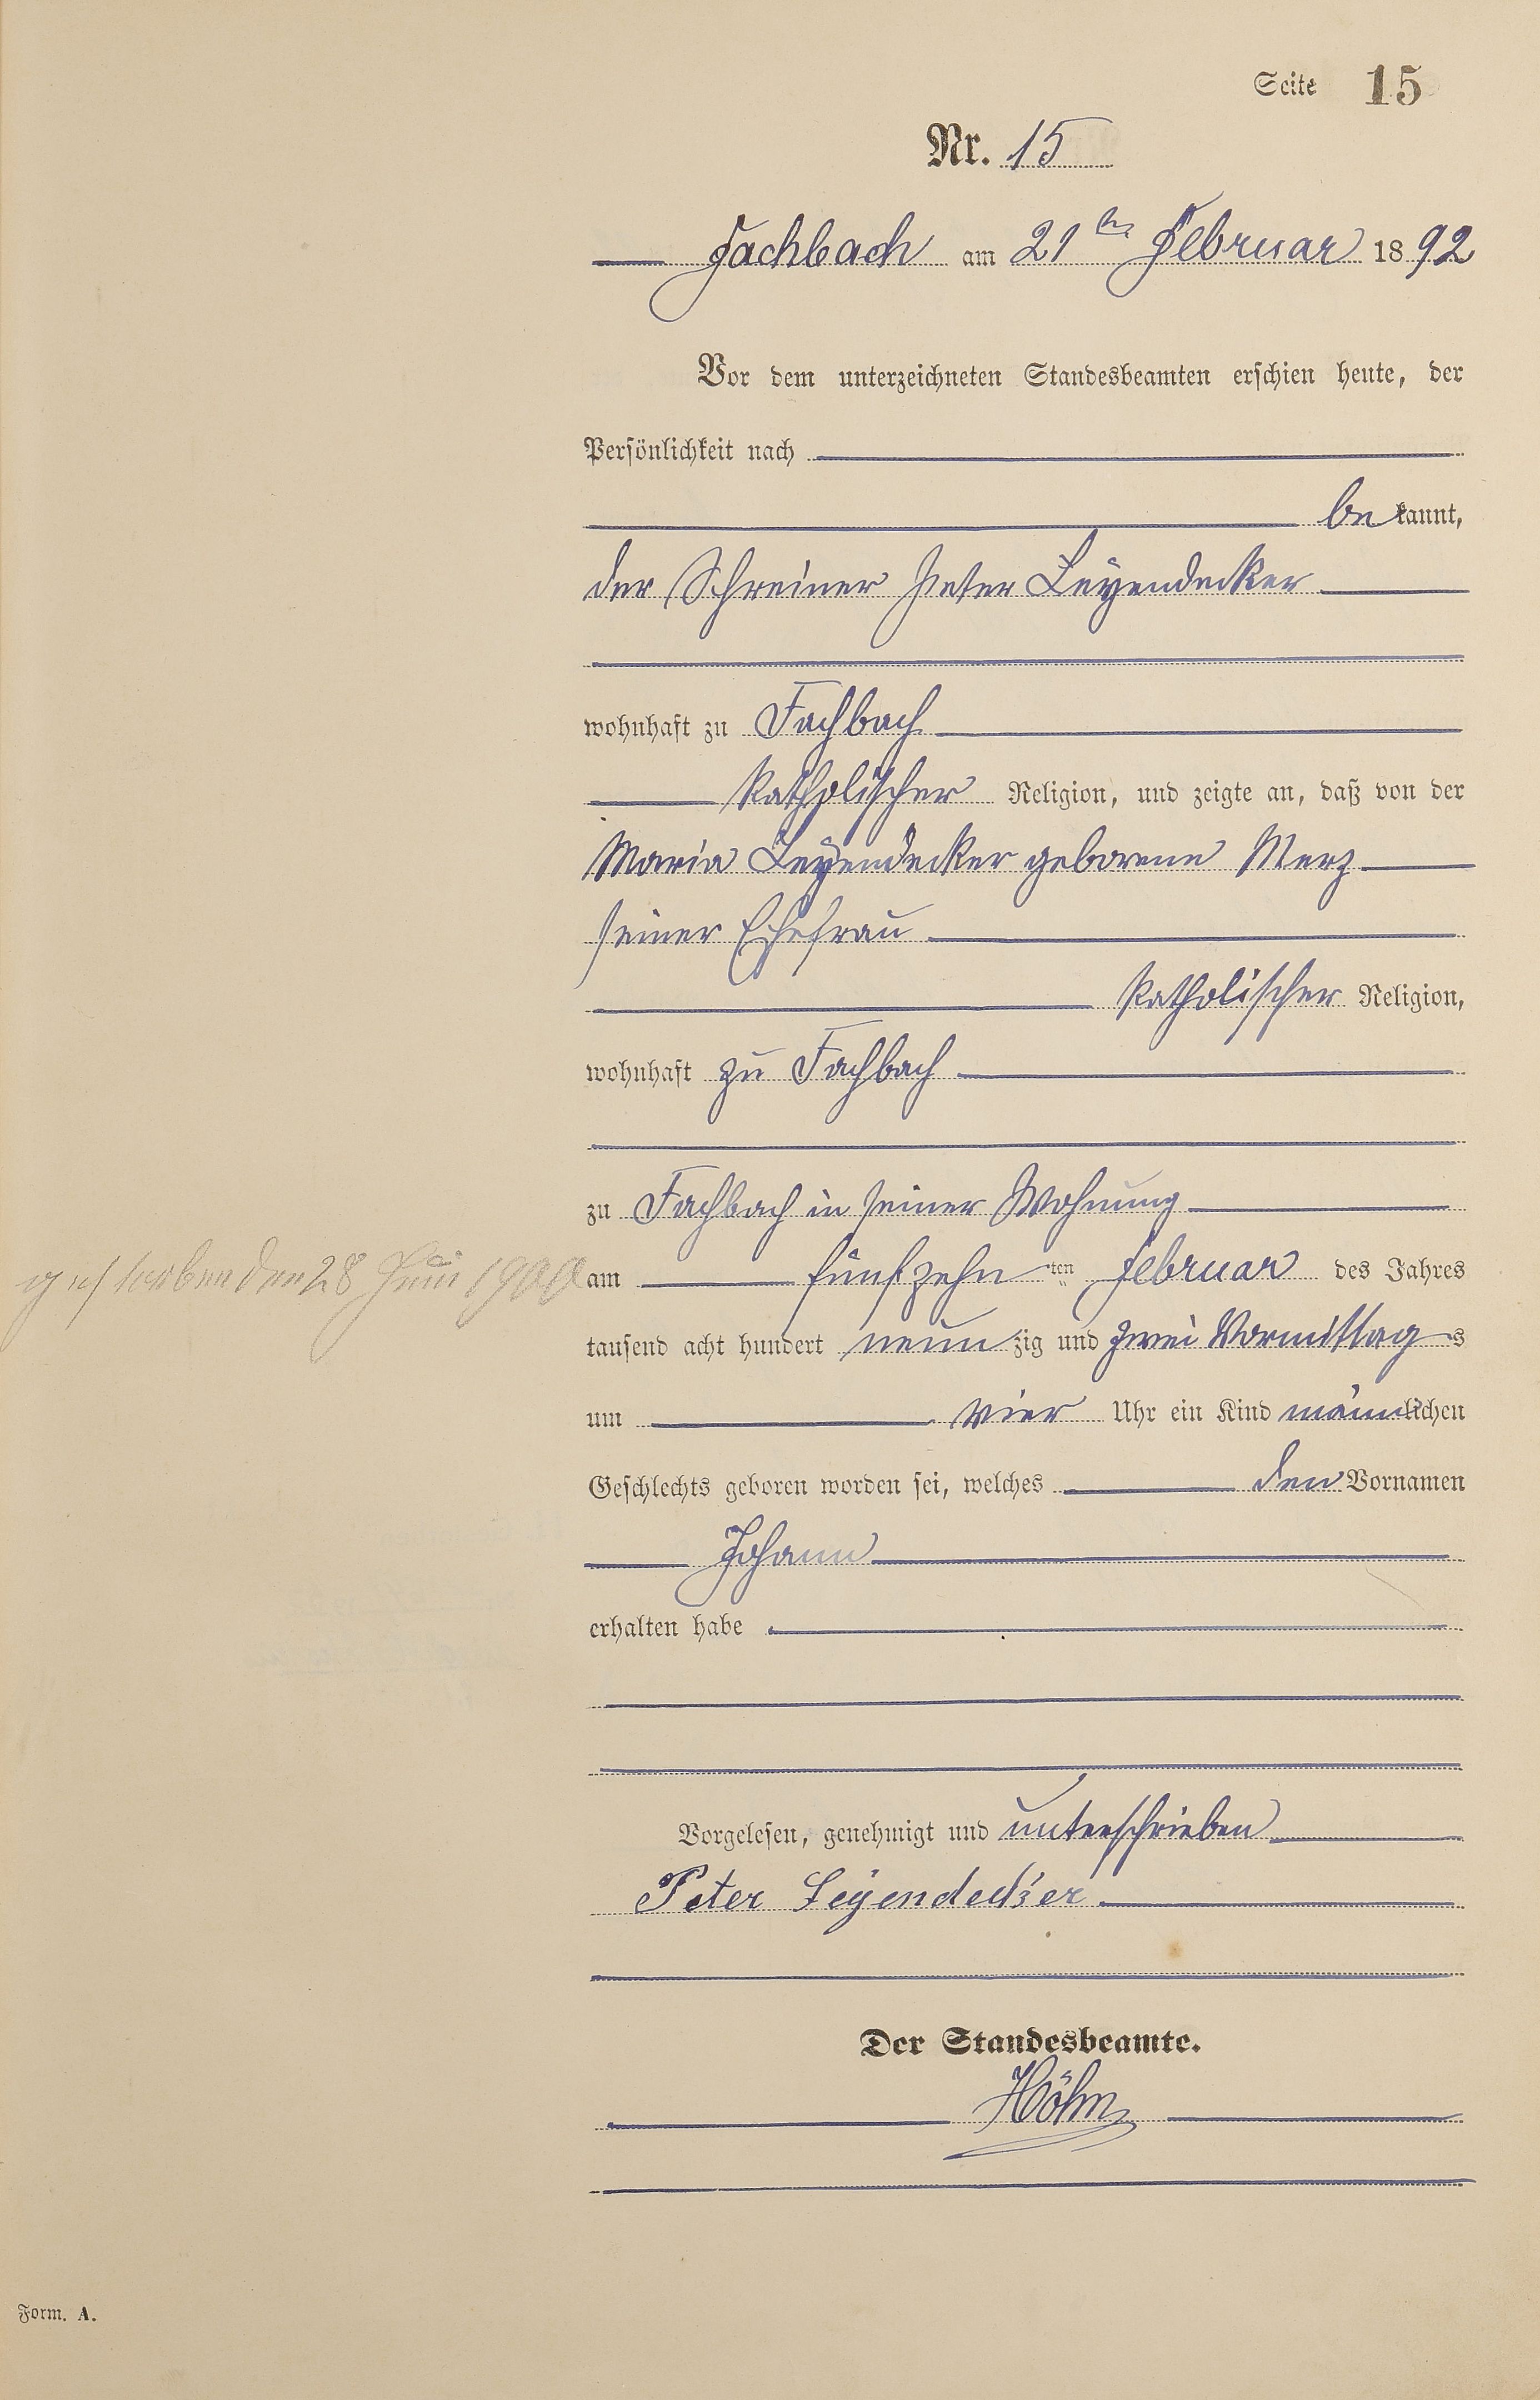 Seite 15
Nr. 15
Fachbach am 21ten Februar 1892
Vor dem unterzeichneten Standesbeamten erschien heute, der
Persönlichkeit nach
bekannt,
der Schreiner Peter Leyendecker
wohnhaft zu Fachbach
katholischer Religion, und zeigte an, daß von der
Maria Leyendecker geborene Merz
seiner Ehefrau
katholischer Religion,
wohnhaft zu Fachbach
zu Fachbach in seiner Wohnung
gestorben den 28 Juni 1900
am fünfzehnten Februar des Jahres
tausend acht hundert neunzig und zwei Vormittags
um vier Uhr ein Kind männlichen
Geschlechts geboren worden sei, welches den Vornamen
Johann
erhalten habe
Vorgelesen, genehmigt und unterschrieben
Peter Leyendecker
Der Standesbeamte.
Höhn
Form. A.